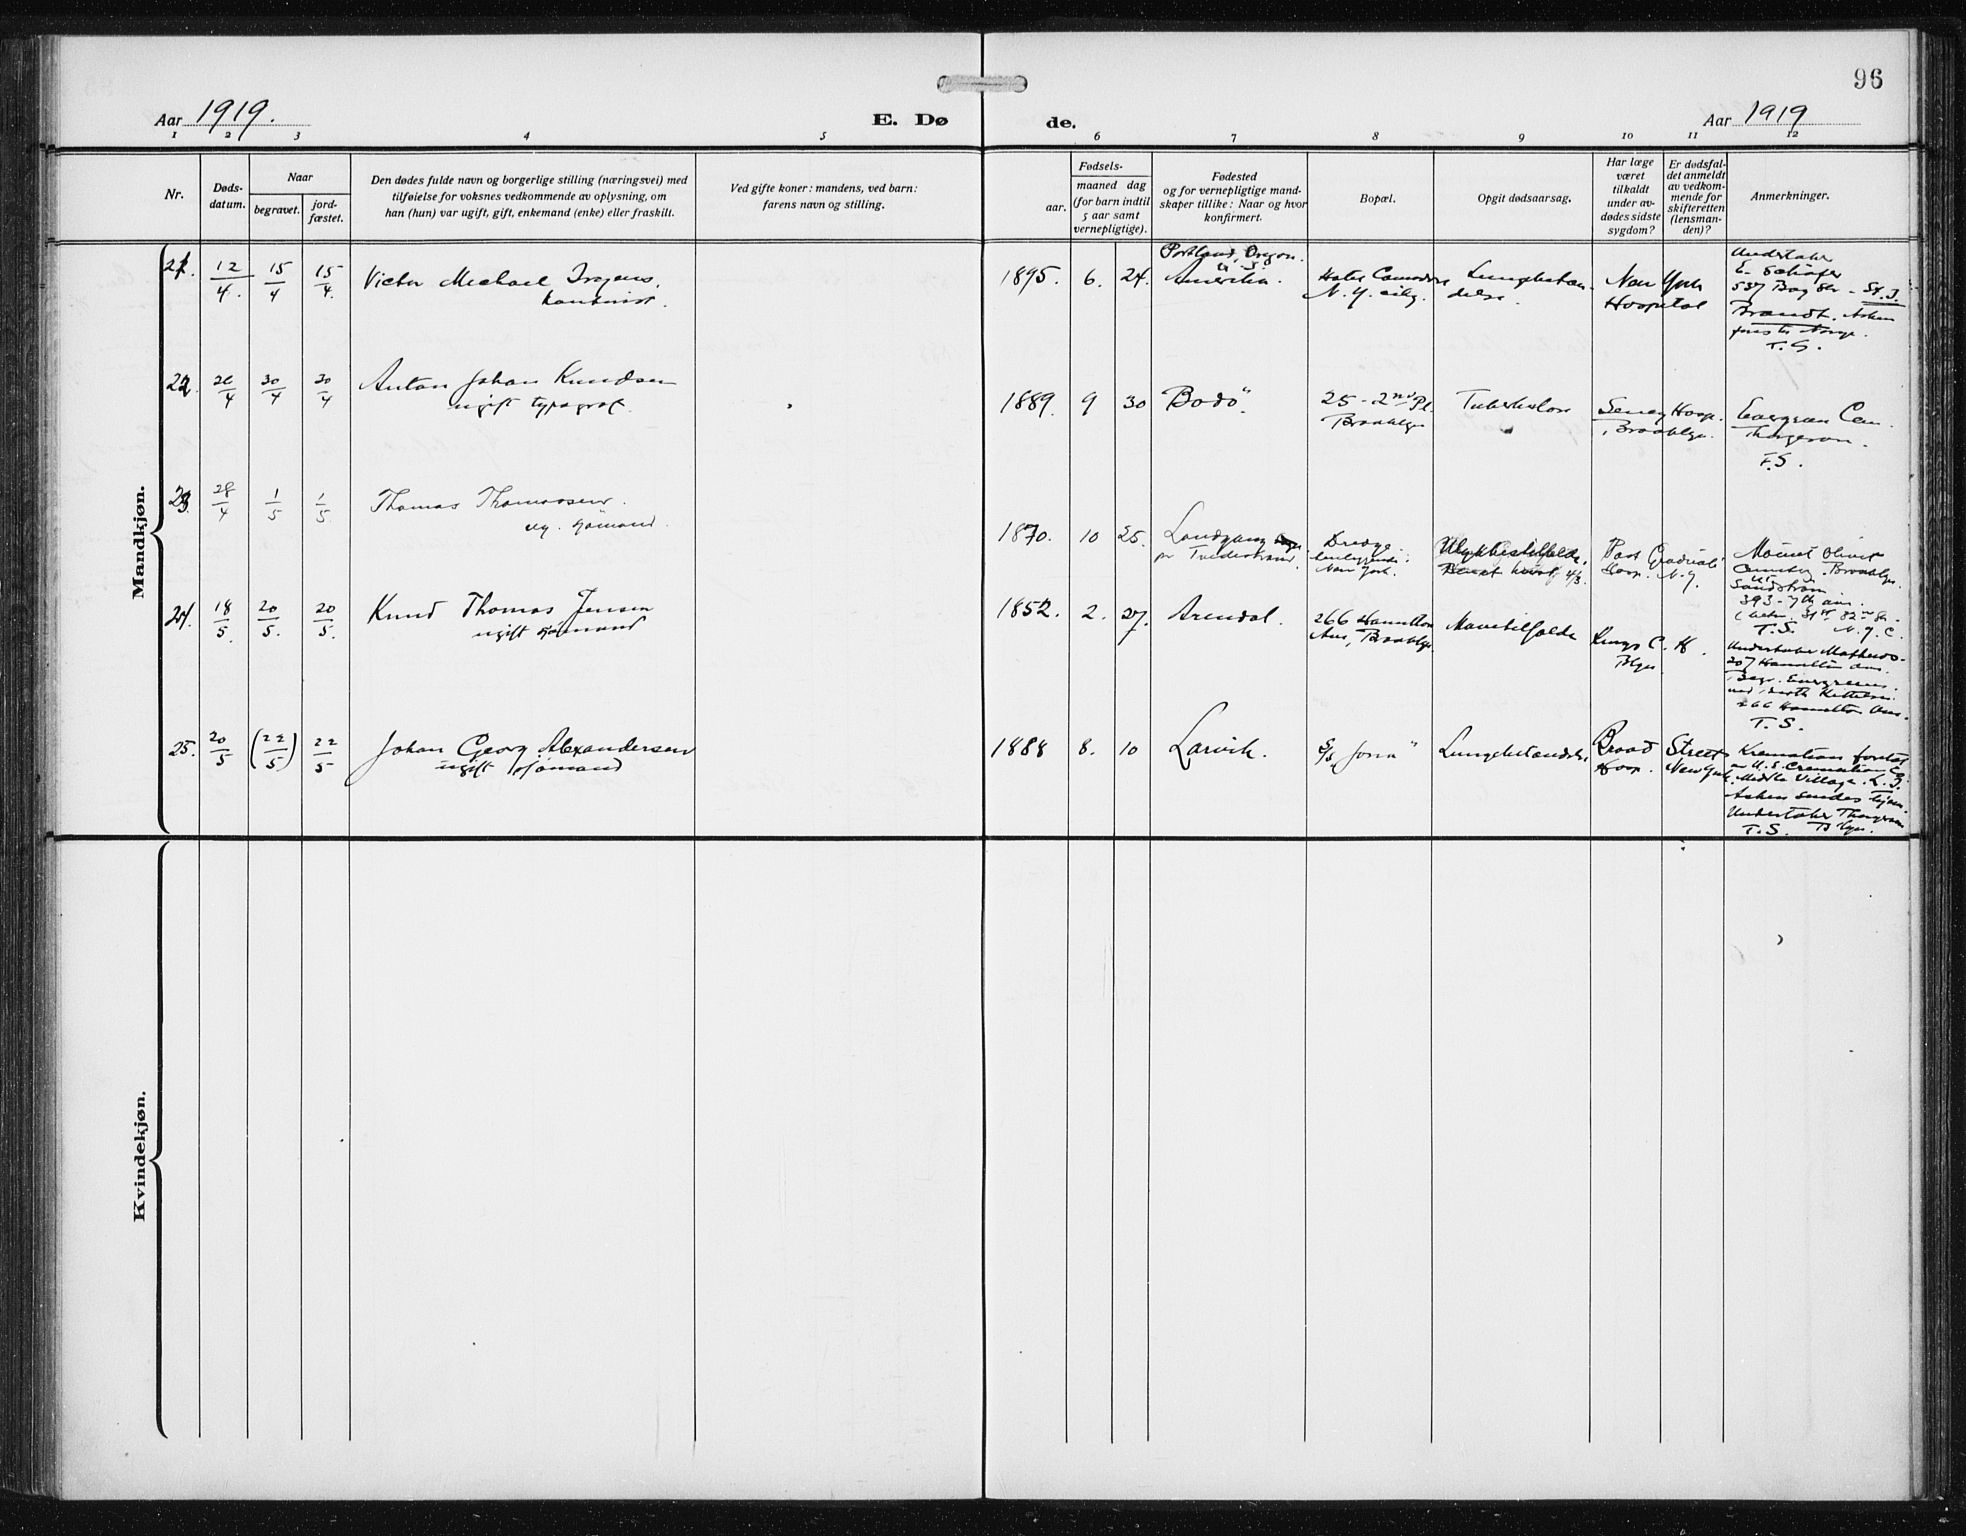 96
Aar 1919.
E. Døde.
Aar 1919
1 2 3 4 5 6 7 8 9 10 11 12
Nr.
Døds-
datum.
Naar
begravet.
jord-
fæstet.
Den dødes fulde navn og borgerlige stilling (næringsvei) med
tilføielse for voksnes vedkommende av oplysning, om
han (hun) var ugift, gift, enkemand (enke) eller fraskilt.
Ved gifte koner: mandens, ved barn:
farens navn og stilling.
Fødsels-
aar.
maaned dag
(for barn indtil
5 aar samt
vernepligtige).
Fødested
og for vernepligtige mand-
skaper tillike: Naar og hvor
konfirmert.
Bopæl.
Opgit dødsaarsag.
Har læge
været
tilkaldt
under av-
dødes sidste
sygdom?
Er dødsfal-
det anmeldt
av vedkom-
mende for
skifteretten
(lensman-
den)?
Anmerkninger.
Mandkjøn.
21. 12/4. 15/4 15/4. Victor Michael
kontorist.
1895. 6. 24.
Portland, Oregon.
Amerika.
Hotel Comodore
N. Y. city.
Lungebetæn-
delse.
New York
Hospital
Undertaker
Schäfer
537 Bay St. - St. I.
Brandt. Asken
Norge.
T. S.
22. 30/4 30/4 Anton Johan Knudsen
ugift typograf.
1889. 9 30 Bodö.
25 - 2nd Pl.
Brooklyn
Tuberkulose
Seney Hosp.
Brooklyn.
Evergreen Cem.
Thorgersen.
T.S.
23. 28/4 1/5 1/5 Thomas Thomassen.
ug. sömand.
1870. 10 25.
pr Tvedestrand.
Dredge
New York.
Ulykkestilfælde.
4/3.
Post Graduate
Hosp. N. Y.
Mount Olivet
Cemetery. Brooklyn.
Sandström
393 - 7th ave.
T.S. N. Y. C.
24. 18/5. 20/5. 20/5. Knud Thomas Jensen
ugift sömand
1852. 2. 27. Arendal.
266 Hamilton
Ave, Brooklyn.
Mavetilfælde
Kings C. H.
Blyn.
Undertaker
207 Hamilton Ave.
Begr. Evergreens.
266 Hamilton Ave.
T. S.
25. 20/5 (22/5) 22/5 Johan Georg Alexandersen
ugift sjömand
1888 8. 10 Larvik.
S/S
Lungebetændelse
Broad Street
Hosp. New York.
Kremation foretat
av U. S. Cremation Co.
Middle Village. L. I.
Asken sendes hjem.
Undertaker Thorgersen
T. S. Blyn.
Kvindekjøn.